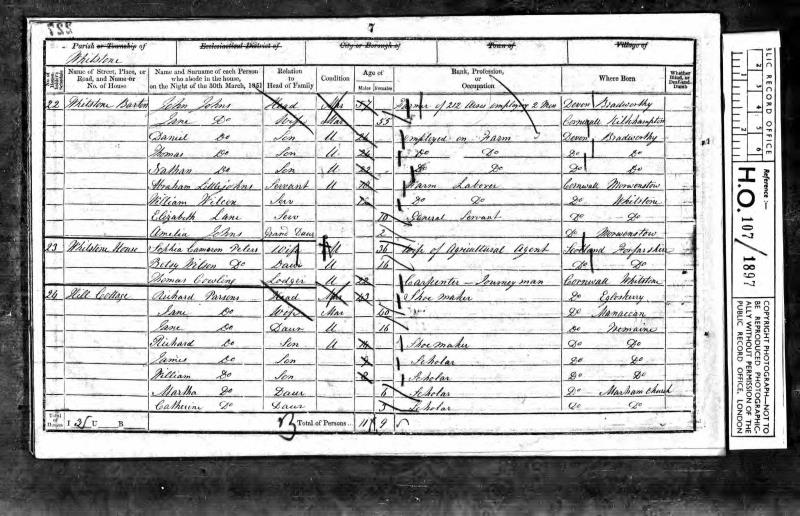 7
227
Parish or Township of Ecclesiastical District of City or Borough of Town of Village of
Whitstone
Name of Street, Place, or Road, and Name or No. of House Name and Surname of each Person who abode in the house, on the Night of the 30th March, 1851 Relation to Head of Family Condition Age of Males Females Rank, Profession, or Occupation Where Born Whether Blind, or Deaf-and-Dumb
22 Whitstone Barton John Johns Head Mar 57 Farmer of 212 Acres employing 2 Men Devon Bradworthy
Jane Do Wife Mar 55 Cornwall Kilkhampton
Daniel Do Son U employed on Farm Devon Bradworthy
Thomas Do Son U Do Do Do Do
Nathan Do Son U 22 Do Do Do Do
Abraham Littlejohns Servant U Farm Laborer Cornwall Morwenstow
William Wilcon Serv Do Do Do Whitstone
Elizabeth Lane Serv 10 General Servant Do Do
Amelia Johns Grand Daur 2 Do Morwenstow
23 Whitstone House Sophia Cameron Peters Wife M 36 Wife of Agricultural Agent Scotland Forfarshire
Betsy Wilson Do Daur U 16 Do Do
Thomas Cowling Lodger U 22 Carpenter - Journeyman Cornwall Whitstone
24 Hill Cottage Richard Parsons Head Mar 43 Shoe maker Do Egloskerry
Jane Do Wife Mar 40 Do Manaccan
Jane Do Daur U 16 Do
Richard Do Son U Shoe maker Do Do
James Do Son Scholar Do Do
William Do Son 8 Scholar Do Do
Martha Do Daur 6 Scholar Do Marham church
Catherine Do Daur 3 Scholar Do Do
Total of Houses I 3 U B Total of Persons 11 9
PUBLIC RECORD OFFICE
1 2 3 4 5 6
Reference :-
H.O. 107/1897
COPYRIGHT PHOTOGRAPH—NOT TO BE REPRODUCED PHOTOGRAPHICALLY WITHOUT PERMISSION OF THE PUBLIC RECORD OFFICE, LONDON